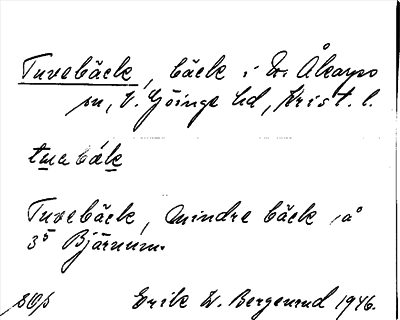 Tuvebäck, bäck i V. Åkarps
sn, V. Göinge hd, Krist. l.
Tuvebäck, mindre bäck å
35 Bjärnum.
Erik W. Bergenrud 1946.